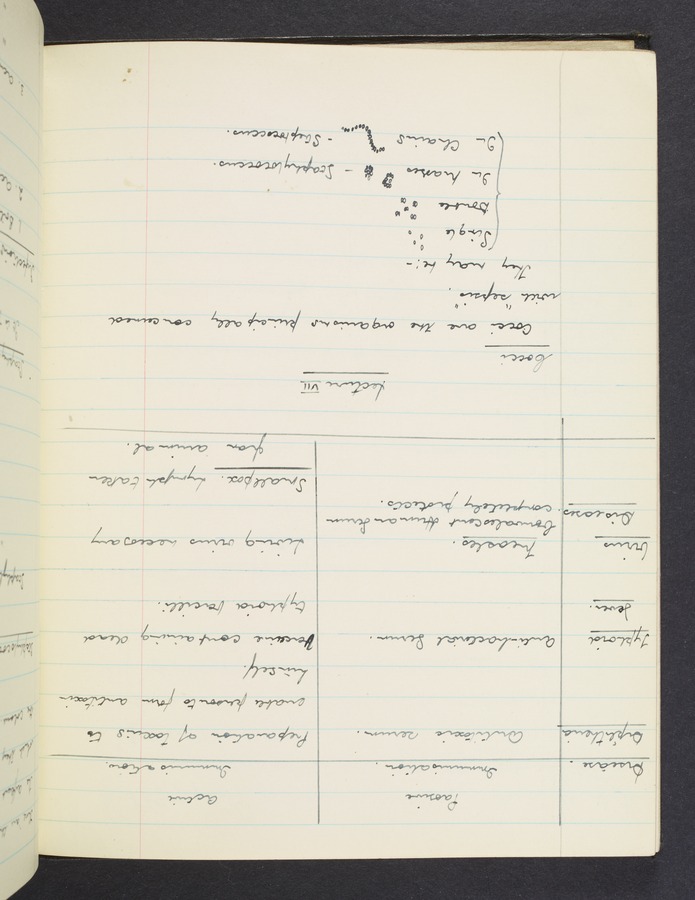 Passive Active
Disease. Immunisation. Immunisation.
Diphtheria Antitoxic serum. Preparation of toxin is to
enable person to form antitoxin
himself.
Typhoid Anti-bacterial Serum. Vaccine containing dead
fever. typhoid bacilli.
Virus Measles. Living virus necessary
Diseases. Convalescent Human Serum
completely protects. Smallpox. Lymph taken
from animal.
Lecture VII
Cocci
Cocci are the organisms principally concerned
with "sepsis".
They may be:-
Single
Double
In Masses - Staphylococcus.
In Chains - Streptococcus.